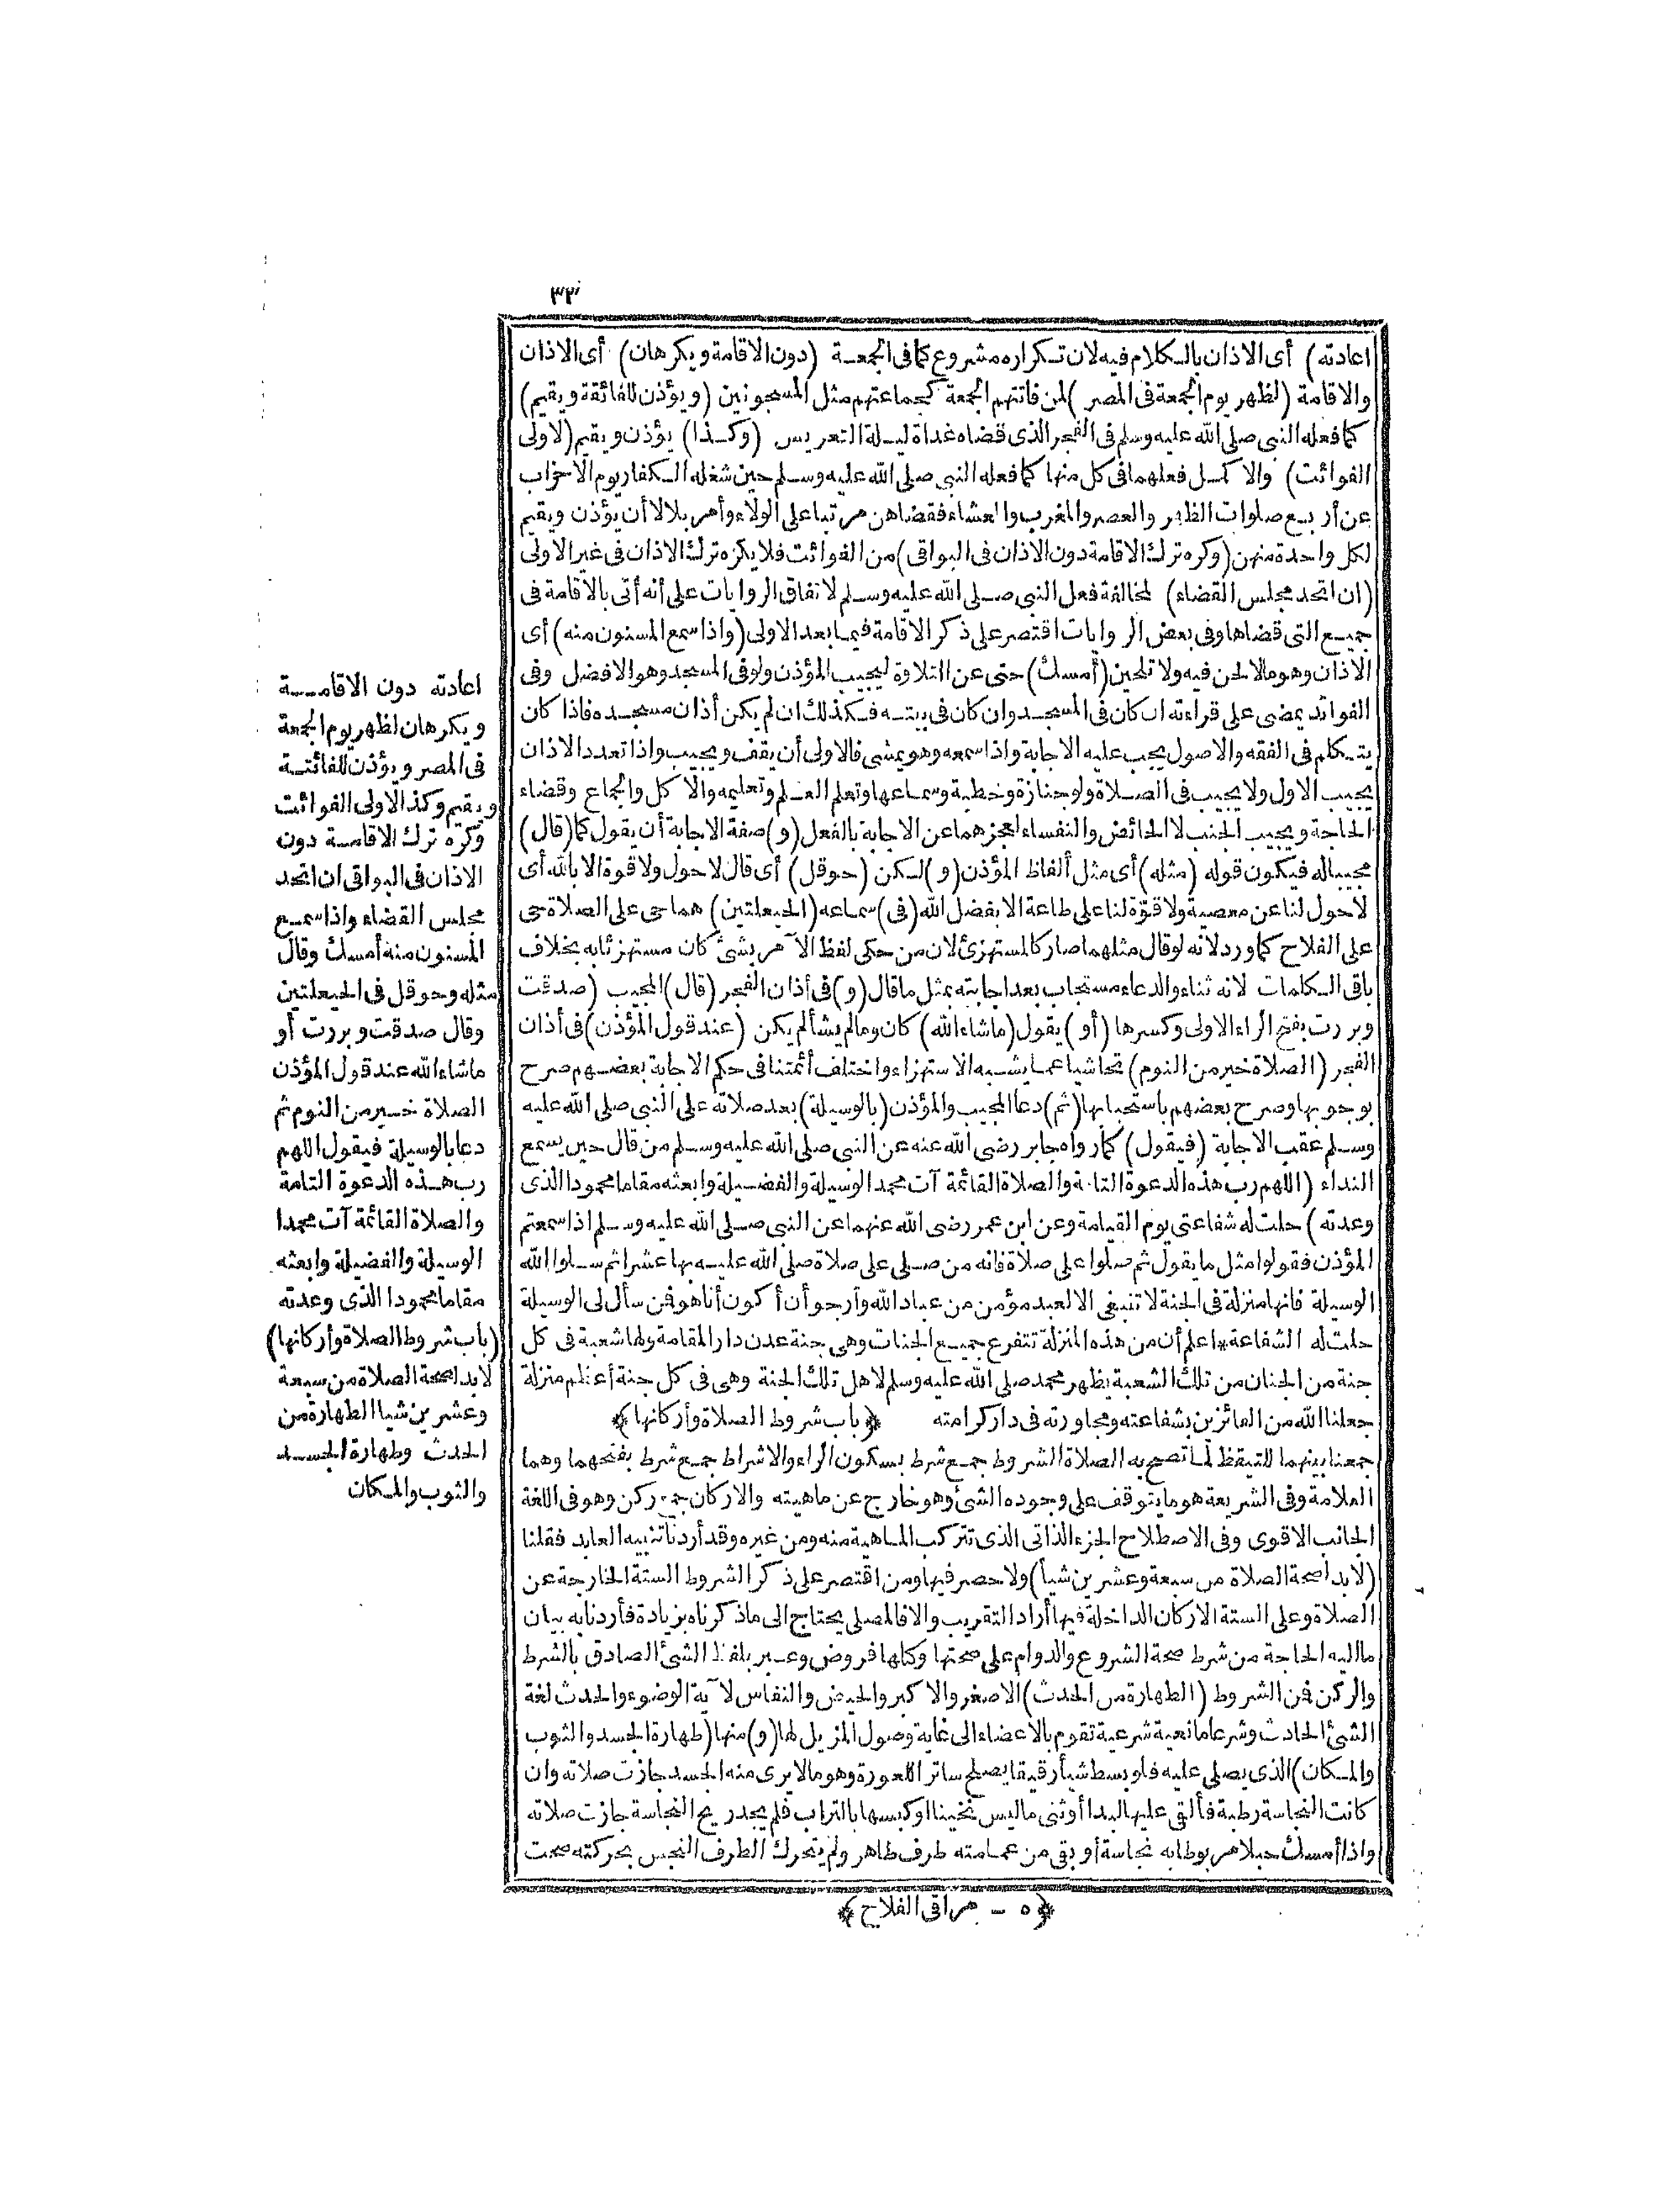 ٣٣
اعادته) أى الاذان بالكلام فيه لان تكراره مشروع كما فى الجمعة (دون الاقامة ويكرهان) أى الاذان
والاقامة (لظهر يوم الجمعة فى المصر) لمن فاتتهم الجمعة كجماعتهم مثل المسجونين (ويؤذن للفائتة ويقيم)
كما فعله النبى صلى الله عليه وسلم فى الفجر الذى قضاه غداة ليلة التعريس (وكذا) يؤذن ويقيم (لاولى
الفوائت) والاكمل فعلهما فى كل منها كما فعله النبى صلى الله عليه وسلم حين شغله الكفار يوم الاحزاب
عن أربع صلوات الظهر والعصر والمغرب والعشاء فقضاهن مرتبا على الولاء وأمر بلالا أن يؤذن ويقيم
لكل واحدة منهن (وكره ترك الاقامة دون الاذان فى البواقى) من الفوائت فلا يكره ترك الاذان فى غير الاولى
(ان اتحد مجلس القضاء) لمخالفة فعل النبى صلى الله عليه وسلم لاتفاق الروايات على أنه أتى بالاقامة فى
جميع التى قضاها وفى بعض الروايات اقتصر على ذكر الاقامة فيما بعد الاولى (واذا سمع المسنون منه) أى
الاذان وهو مالا لحن فيه ولا تلحين (أمسك) حتى عن التلاوة ليجيب المؤذن ولو فى المسجد وهو الافضل وفى
الفوائد يمضى على قراءته ان كان فى المسجد وان كان فى بيته فكذلك ان لم يكن أذان مسجده فاذا كان
يتكلم فى الفقه والاصول يجب عليه الاجابة واذا سمعه وهو يمشى فالاولى أن يقف ويجيب واذا تعدد الاذان
يجيب الاول ولا يجيب فى الصلاة ولو جنازة وخطبة وسماعها وتعلم العلم وتعليمه والاكل والجماع وقضاء
الحاجة ويجيب الجنب لا الحائض والنفساء لعجزهما عن الاجابة بالفعل (و) صفة الاجابة أن يقول كما (قال)
مجيبا له فيكون قوله (مثله) أى مثل ألفاظ المؤذن (و) لكن (حوقل) أى قال لا حول ولا قوة الا بالله أى
لا حول لنا عن معصية ولا قوّة لنا على طاعة الا بفضل الله (فى) سماعه (الحيعلتين) هما حى على الصلاة حى
على الفلاح كما ورد لانه لو قال مثلهما صار كالمستهزئ لان من حكى لفظ الآمر بشئ كان مستهزئا به بخلاف
باقى الكلمات لانه ثناء والدعاء مستجاب بعد اجابته بمثل ما قال (و) فى أذان الفجر (قال) المجيب (صدقت
وبررت بفتح الراء الاولى وكسرها (أو) يقول (ماشاء الله) كان ومالم يشألم يكن (عند قول المؤذن) فى أذان
الفجر (الصلاة خير من النوم) تحاشيا عما يشبه الاستهزاء واختلف أئمتنا فى حكم الاجابة بعضهم صرح
بوجوبها وصرح بعضهم باستحبابها (ثم) دعا المجيب والمؤذن (بالوسيلة) بعد صلاته على النبى صلى الله عليه
وسلم عقب الاجابة (فيقول) كما رواه جابر رضى الله عنه عن النبى صلى الله عليه وسلم من قال حين يسمع
النداء (اللهم رب هذه الدعوة التامة والصلاة القائمة آت محمد الوسيلة والفضيلة وابعثه مقاما محمودا الذى
وعدته) حلت له شفاعتى يوم القيامة وعن ابن عمر رضى الله عنهما عن النبى صلى الله عليه وسلم اذا سمعتم
المؤذن فقولوا مثل ما يقول ثم صلوا على صلاة فانه من صلى على صلاة صلى الله عليه بها عشرا ثم سلوا الله
الوسيلة فانها منزلة فى الجنة لا تنبغى الا لعبد مؤمن من عباد الله وأرجو أن أكون أنا هو فمن سأل لى الوسيلة
حلت له الشفاعة * اعلم أن من هذه المنزلة تتفرع جميع الجنات وهى جنة عدن دار المقامة ولها شعبة فى كل
جنة من الجنان من تلك الشعبة يظهر محمد صلى الله عليه وسلم لاهل تلك الجنة وهى فى كل جنة أعظم منزلة
جعلنا الله من الفائزين بشفاعته ومجاورته فى دار كرامته ﴿باب شروط الصلاة وأركانها﴾
جمعنا بينهما للتيقظ لما تصح به الصلاة الشروط جمع شرط بسكون الراء والاشراط جمع شرط بفتحهما وهما
العلامة وفى الشريعة هو ما يتوقف على وجوده الشئ وهو خارج عن ماهيته والاركان جمع ركن وهو فى اللغة
الجانب الاقوى وفى الاصطلاح الجزء الذاتى الذى تتركب الماهية منه ومن غيره وقد أردنا تنبيه العابد فقلنا
(لابد لصحة الصلاة من سبعة وعشرين شيأ) ولا حصر فيها ومن اقتصر على ذكر الشروط الستة الخارجة عن
الصلاة وعلى الستة الاركان الداخلة فيها أراد التقريب والا فالمصلى يحتاج الى ما ذكرناه بزيادة فأردنا به بيان
ما اليه الحاجة من شرط صحة الشروع والدوام على صحتها وكلها فروض وعبر بلفظ الشئ الصادق بالشرط
والركن فمن الشروط (الطهارة من الحدث) الاصغر والاكبر والحيض والنفاس لآية الوضوء والحدث لغة
الشئ الحادث وشرعا مانعية شرعية تقوم بالاعضاء الى غاية وصول المزيل لها (و) منها (طهارة الجسد والثوب
والمكان) الذى يصلى عليه فلو بسط شيأ رقيقا يصلح ساتر اللعورة وهو مالا يرى منه الجسد جازت صلاته وان
كانت النجاسة رطبة فألقى عليها لبدا أو ثنى ما ليس ثخينا أو كبسها بالتراب فلم يجد ريح النجاسة جازت صلاته
واذا أمسك حبلا مربوطا به نجاسة أو بقى من عمامته طرف طاهر ولم يتحرك الطرف النجس بحركته صحت
اعادته دون الاقامة
ويكرهان لظهر يوم الجمعة
فى المصر ويؤذن للفائتة
ويقيم وكذا لاولى الفوائت
وكره ترك الاقامة دون
الاذان فى البواقى ان اتحد
مجلس القضاء واذا سمع
المسنون منه أمسك وقال
مثله وحوقل فى الحيعلتين
وقال صدقت وبررت أو
ماشاء الله عند قول المؤذن
الصلاة خير من النوم ثم
دعا بالوسيلة فيقول اللهم
رب هذه الدعوة التامة
والصلاة القائمة آت محمدا
الوسيلة والفضيلة وابعثه
مقاما محمودا الذى وعدته
(باب شروط الصلاة وأركانها)
لابد لصحة الصلاة من سبعة
وعشرين شيا الطهارة من
الحدث وطهارة الجسد
والثوب والمكان
﴿٥ - مراقى الفلاح﴾